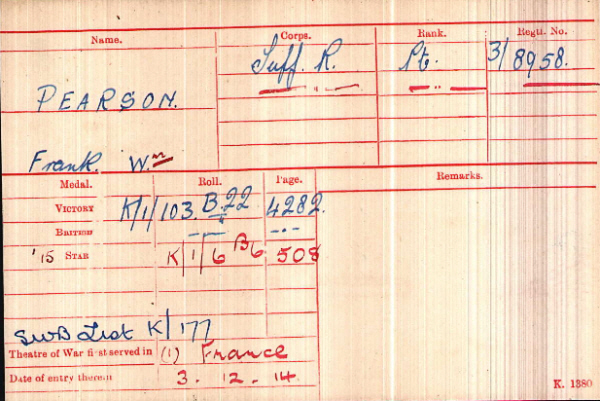 Name. Corps. Rank. Regtl. No.
Suff. R. Pt. 3/8958.
PEARSON.
Frank. Wm
Medal. Roll. Page. Remarks.
VICTORY K/1/103.B.22 4282.
BRITISH -"- -"-
'15 STAR K/1/6 B6 508
SWB List K/177
Theatre of War first served in (1) France
Date of entry therein 3. 12. 14.
K. 1380